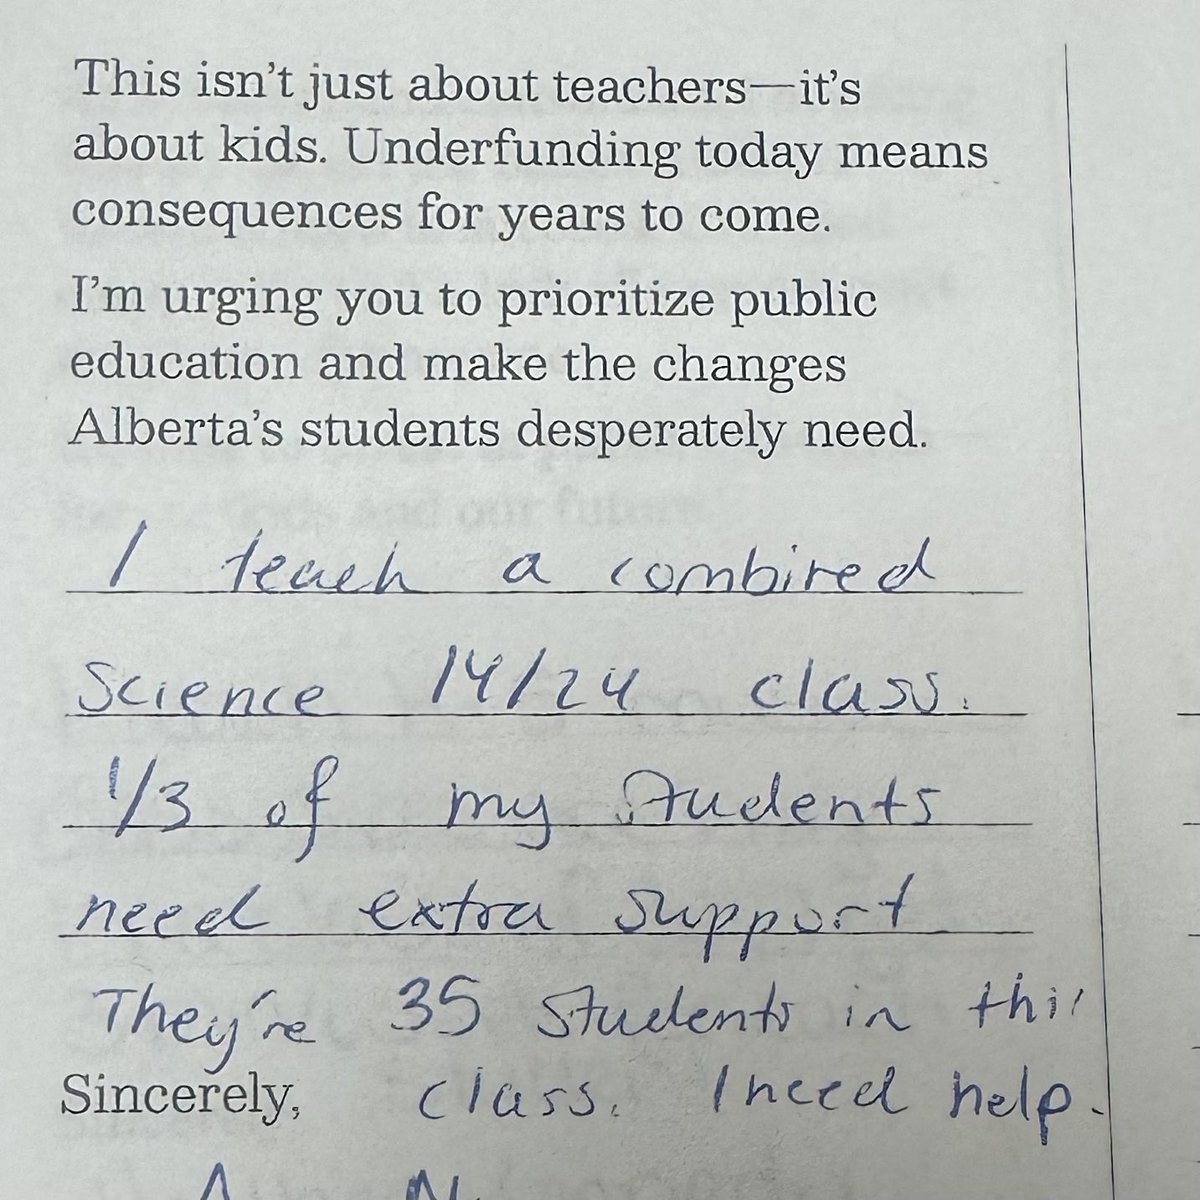 This isn't just about teachers—it's
about kids. Underfunding today means
consequences for years to come.
I'm urging you to prioritize public
education and make the changes
Alberta's students desperately need.
I teach a combined
Science 14/24 class.
1/3 of my students
need extra support
They're 35 students in this
Sincerely, class. I need help.